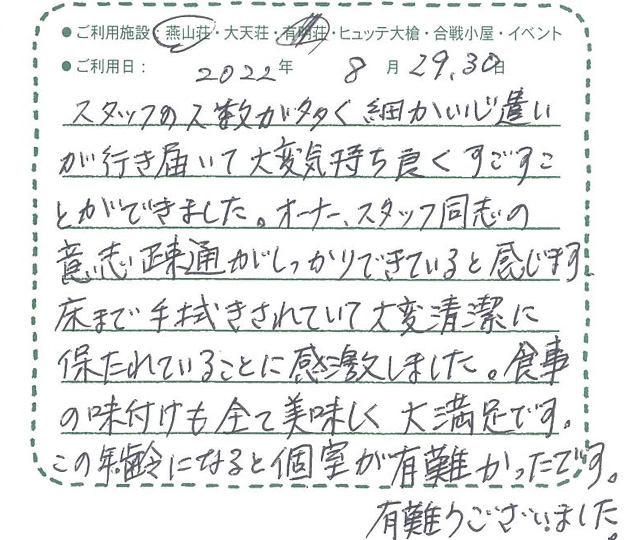 ● ご利用施設：燕山荘・大天荘・有明荘・ヒュッテ大槍・合戦小屋・イベント
● ご利用日： 2022年 8月 29,30日
スタッフの人数が多く細かい心遣い
が行き届いて大変気持ち良くすごすこ
とができました。オーナー、スタッフ同志の
意志疎通がしっかりできていると感じます。
床まで手拭きされていて大変清潔に
保たれていることに感激しました。食事
の味付けも全て美味しく大満足です。
この年齢になると個室が有難かったです。
有難うございました。